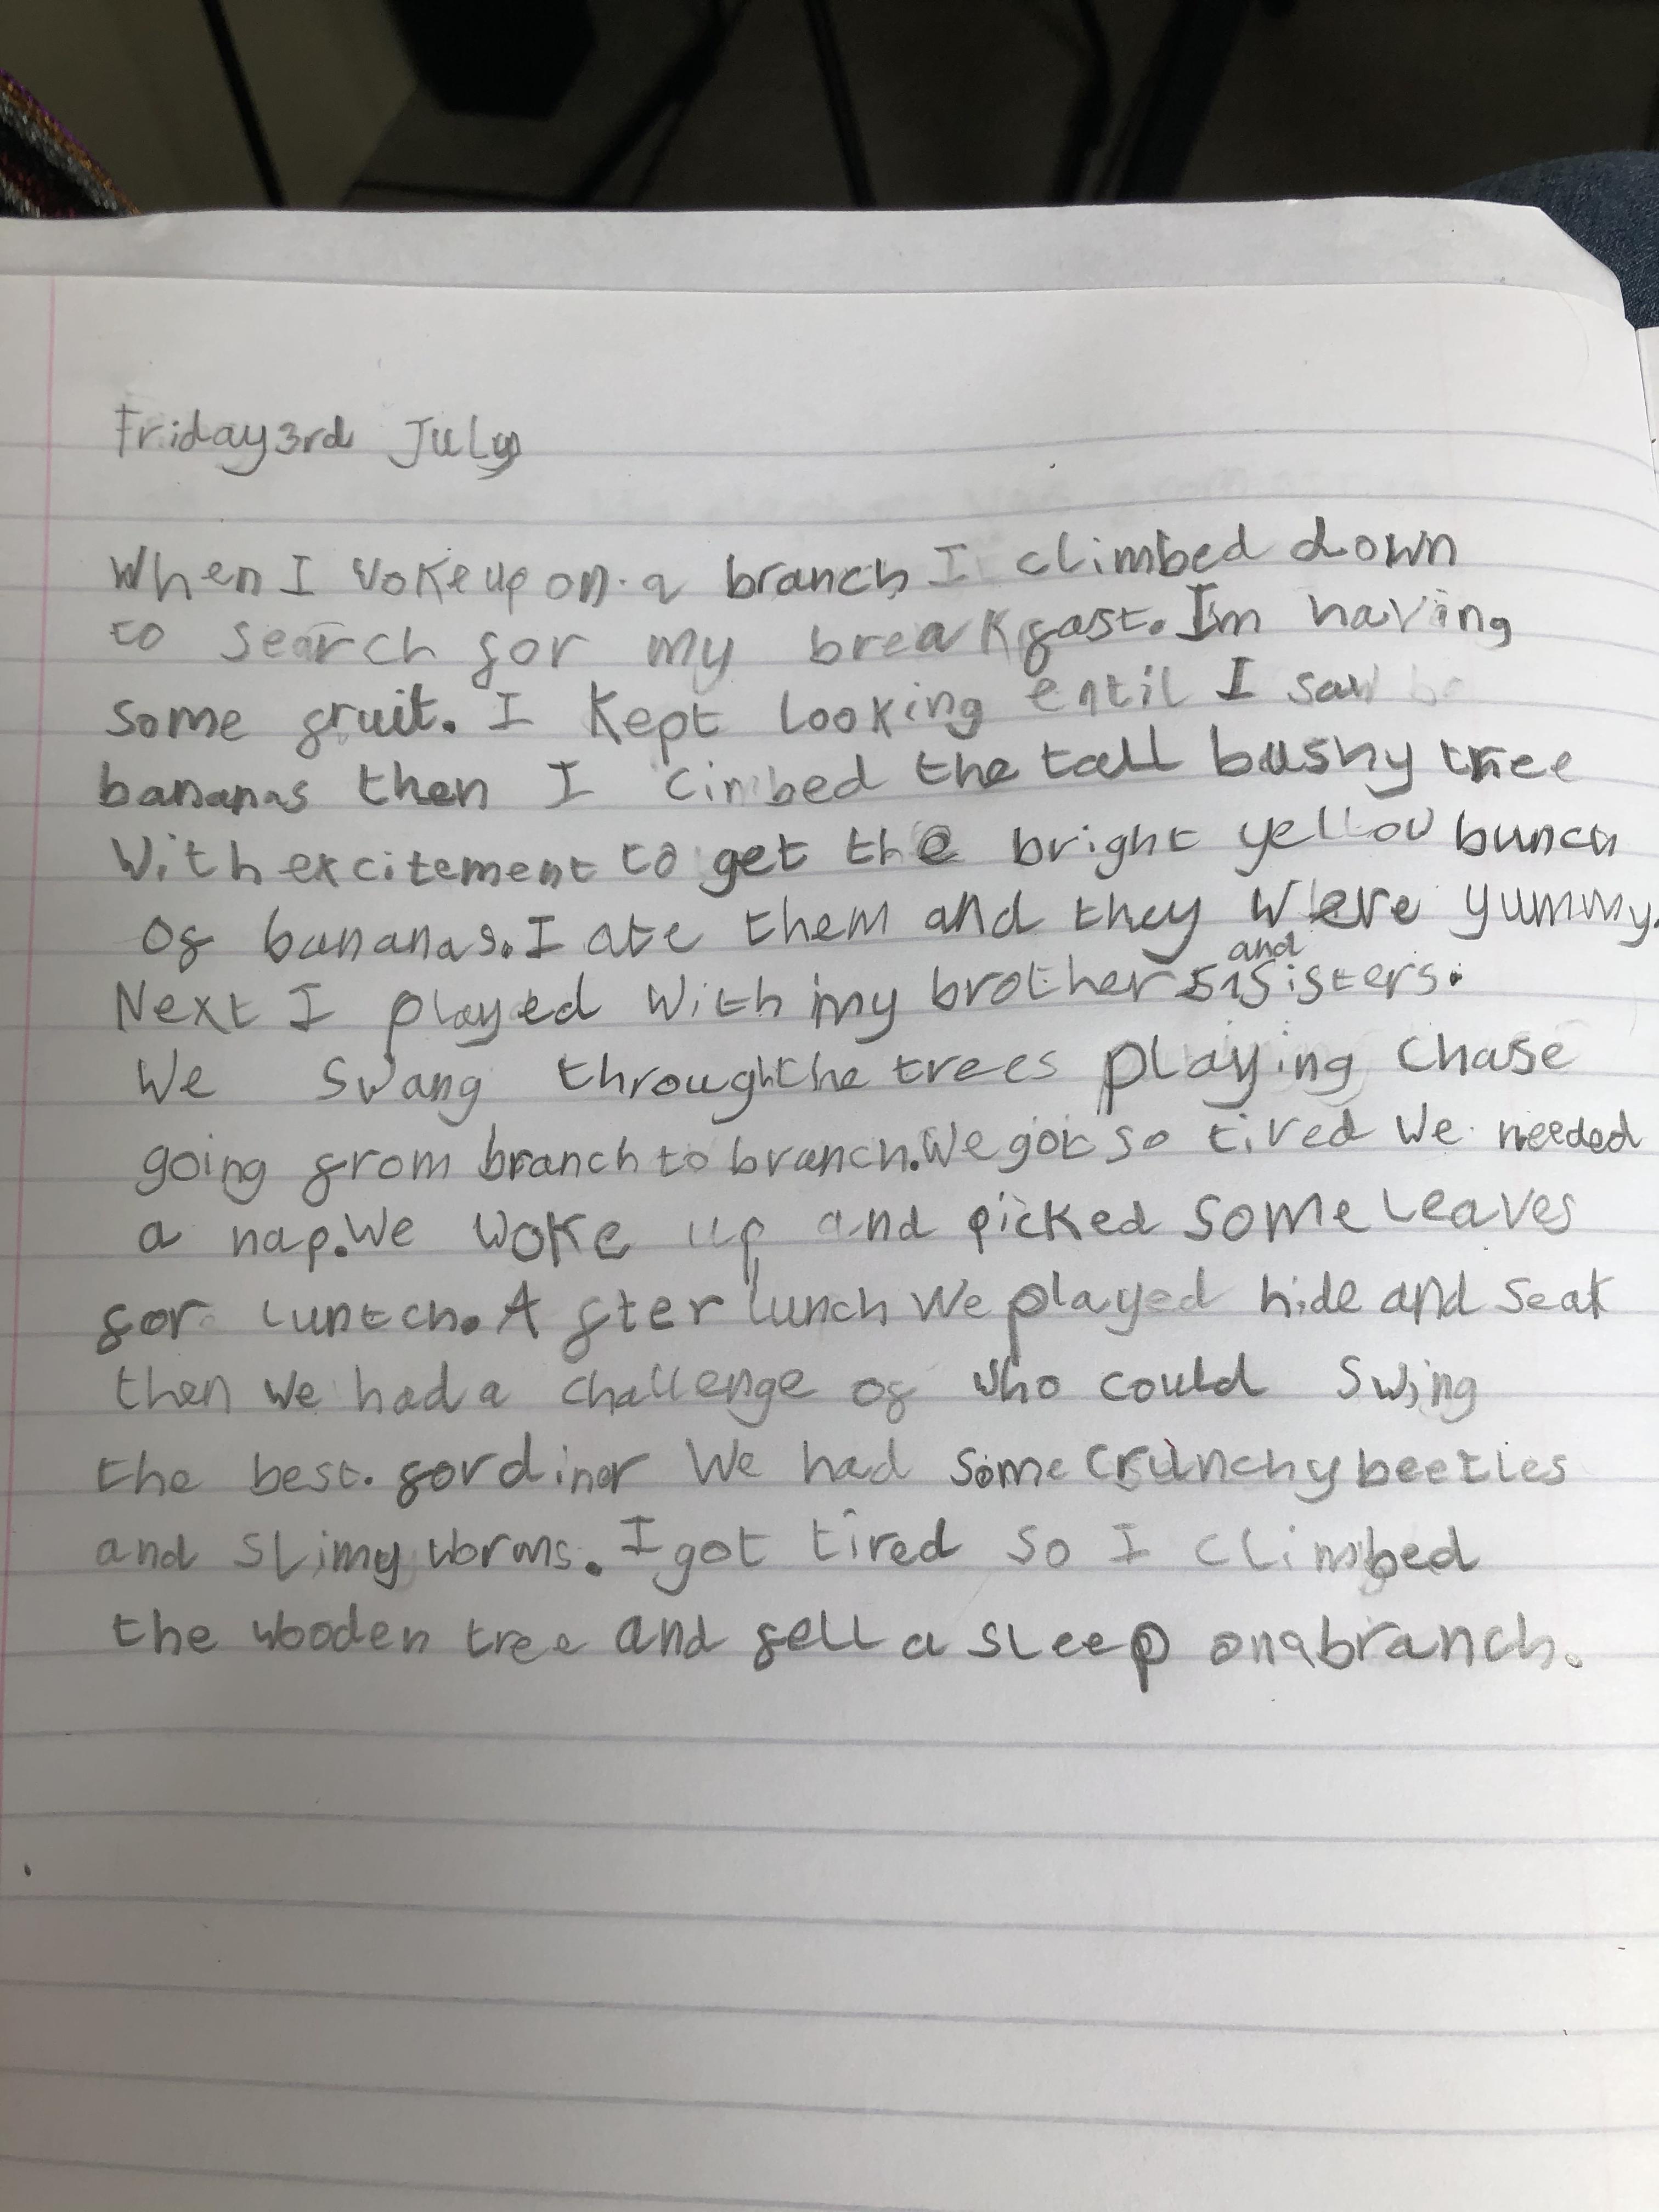 Friday 3rd July
When I woke up on a branch I climbed down
to search for my breakfast. I'm having
some fruit. I kept looking entil I saw
bananas then I cimbed the tall bushy tree
With excitement to get the bright yellow bunch
of bananas. I ate them and they were yummy.
Next I played with my brothers and sisters.
We swang through the trees playing chase
going from branch to branch. We got so tired we needed
a nap. We woke up and picked some leaves
for luntch. After lunch we played hide and seak
then we had a challenge of who could swing
the best. for dinor We had some crunchy beetles
and slimy worms. I got tired so I climbed
the wooden tree and fell a sleep on a branch.